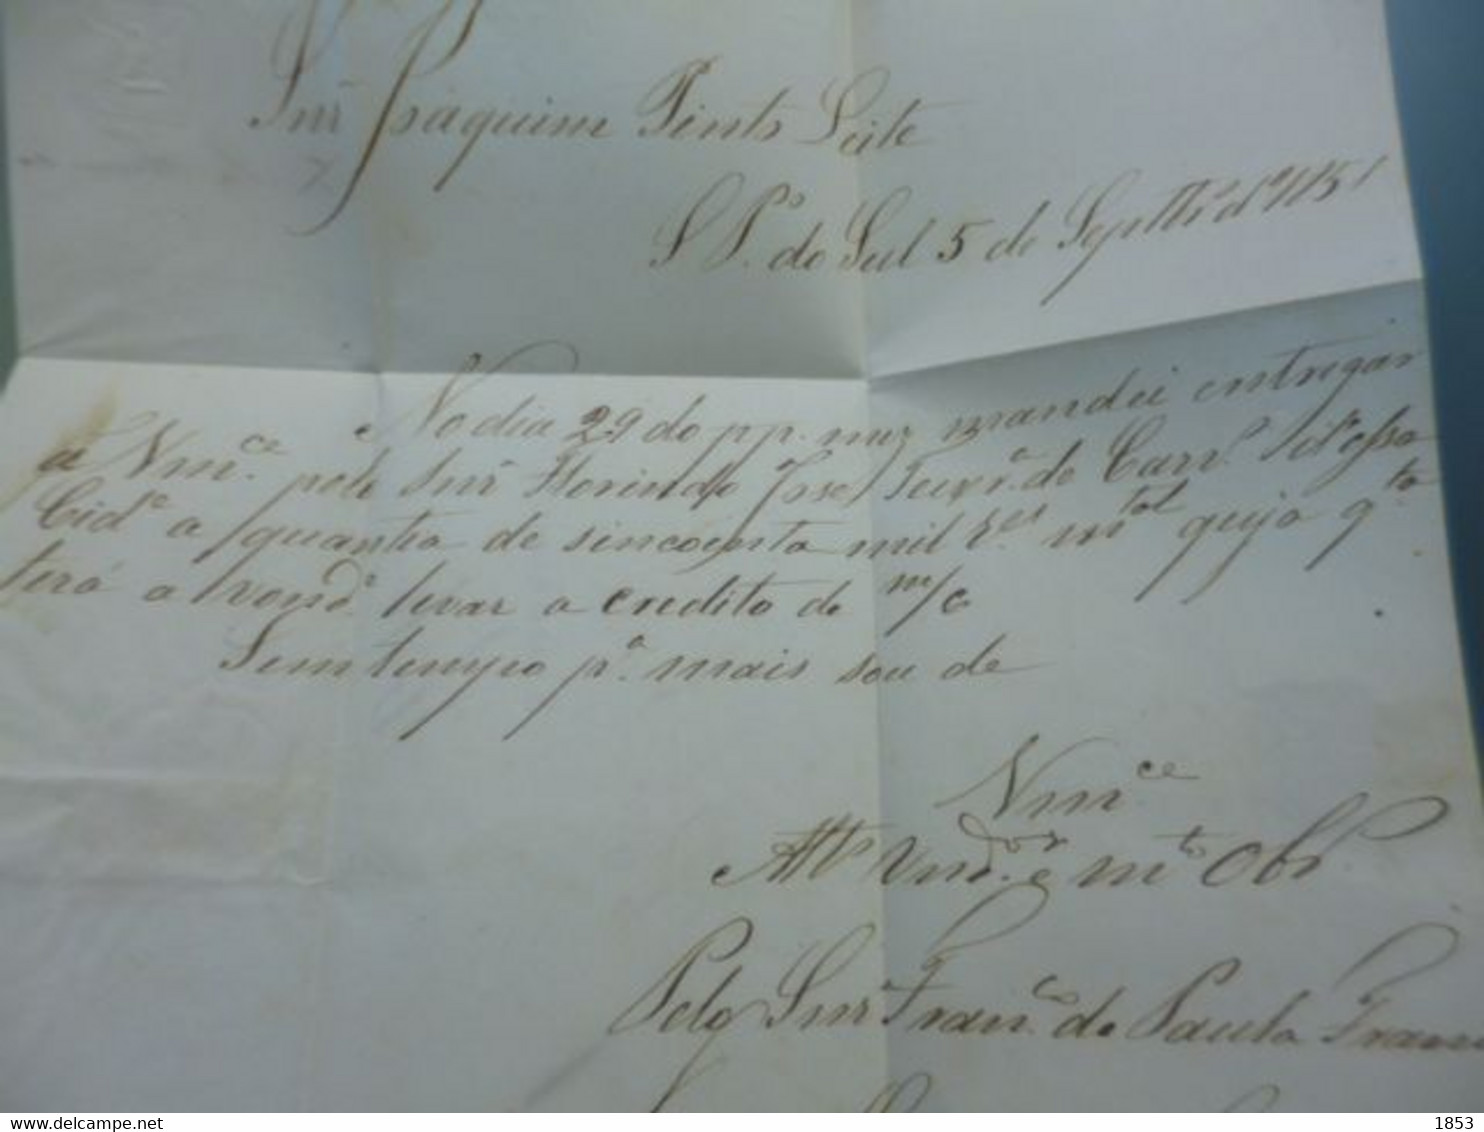 Snr̃ Joaquim Pinto Leite
S. P.º do Sul 5 de Septbr.º d'1851
No dia 29 do pp. mez mandei entregar
a Vm.ce pelo Snr̃ Florindo José Teixr.ª de Carv.º d'essa
Cid.e a quantia de sincoenta mil r.es m.tal cuja q.ta
terá a bond.e levar a credito de m/c
Sem tempo p.ª mais sou de
Vm.ce
Att.º Vn.dor e m.to Obr.º
Pelo Snr̃ Fran.co de Paula
delcampe.net
jm_selos
1853